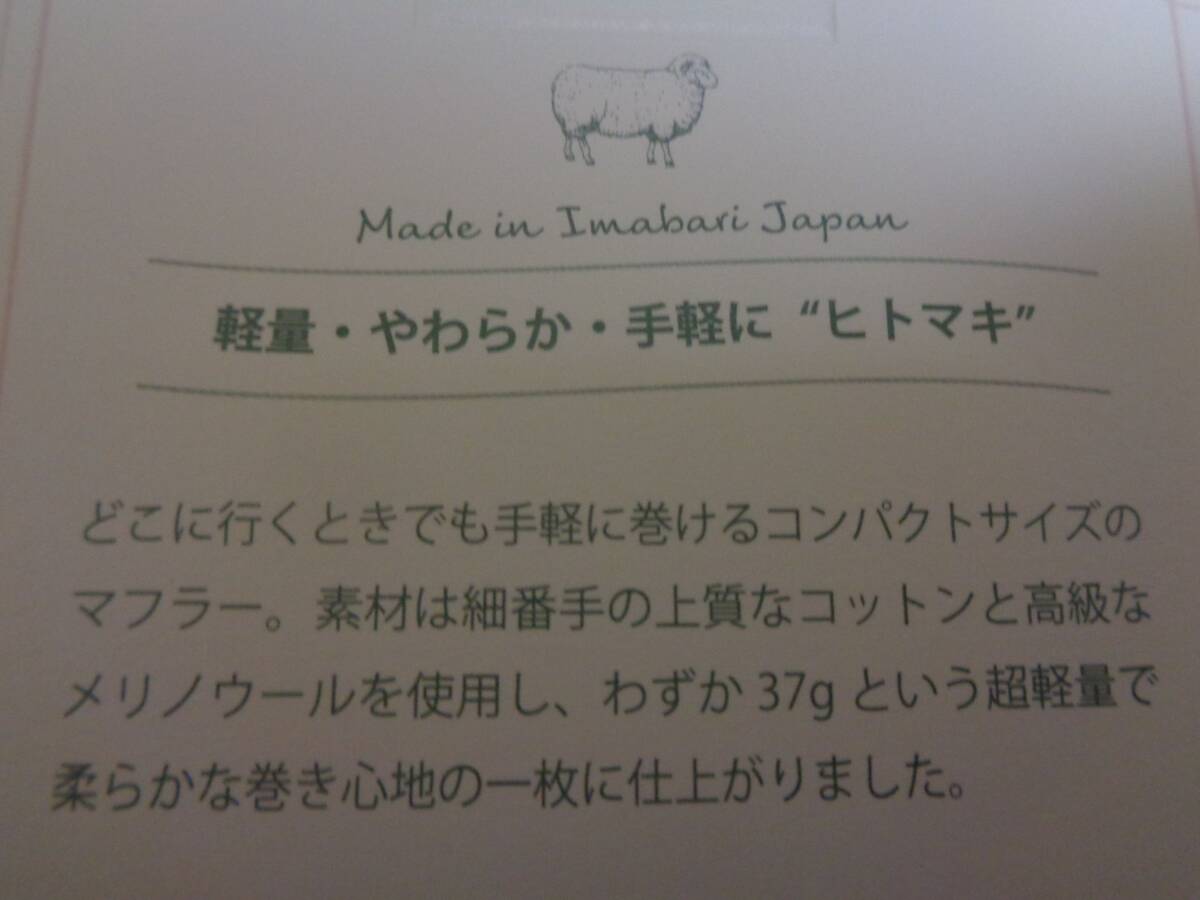 Made in Imabari Japan
軽量・やわらか・手軽に “ヒトマキ”
どこに行くときでも手軽に巻けるコンパクトサイズの
マフラー。素材は細番手の上質なコットンと高級な
メリノウールを使用し、わずか 37g という超軽量で
柔らかな巻き心地の一枚に仕上がりました。